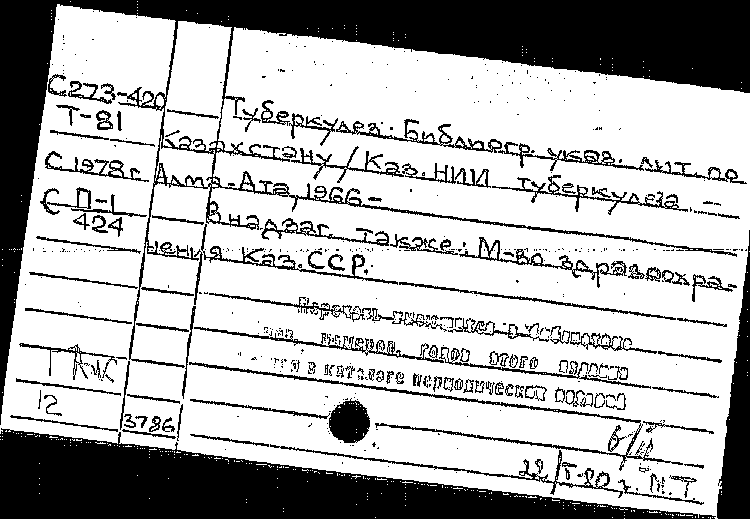 С273-420
Т-81
Туберкулез: Библиогр. указ. лит. по
Казахстану / Каз. НИИ туберкулеза. –
С 1978 г. Алма-Ата, 1966 –
С П-1
424
В надзаг. также: М-во здравоохра-
нения Каз. ССР.
Перечень имеющихся в библиотеке
номеров, годов этого издания
в каталоге периодических изданий
12
3786
6/II
22/Т-80 г. М.Т.